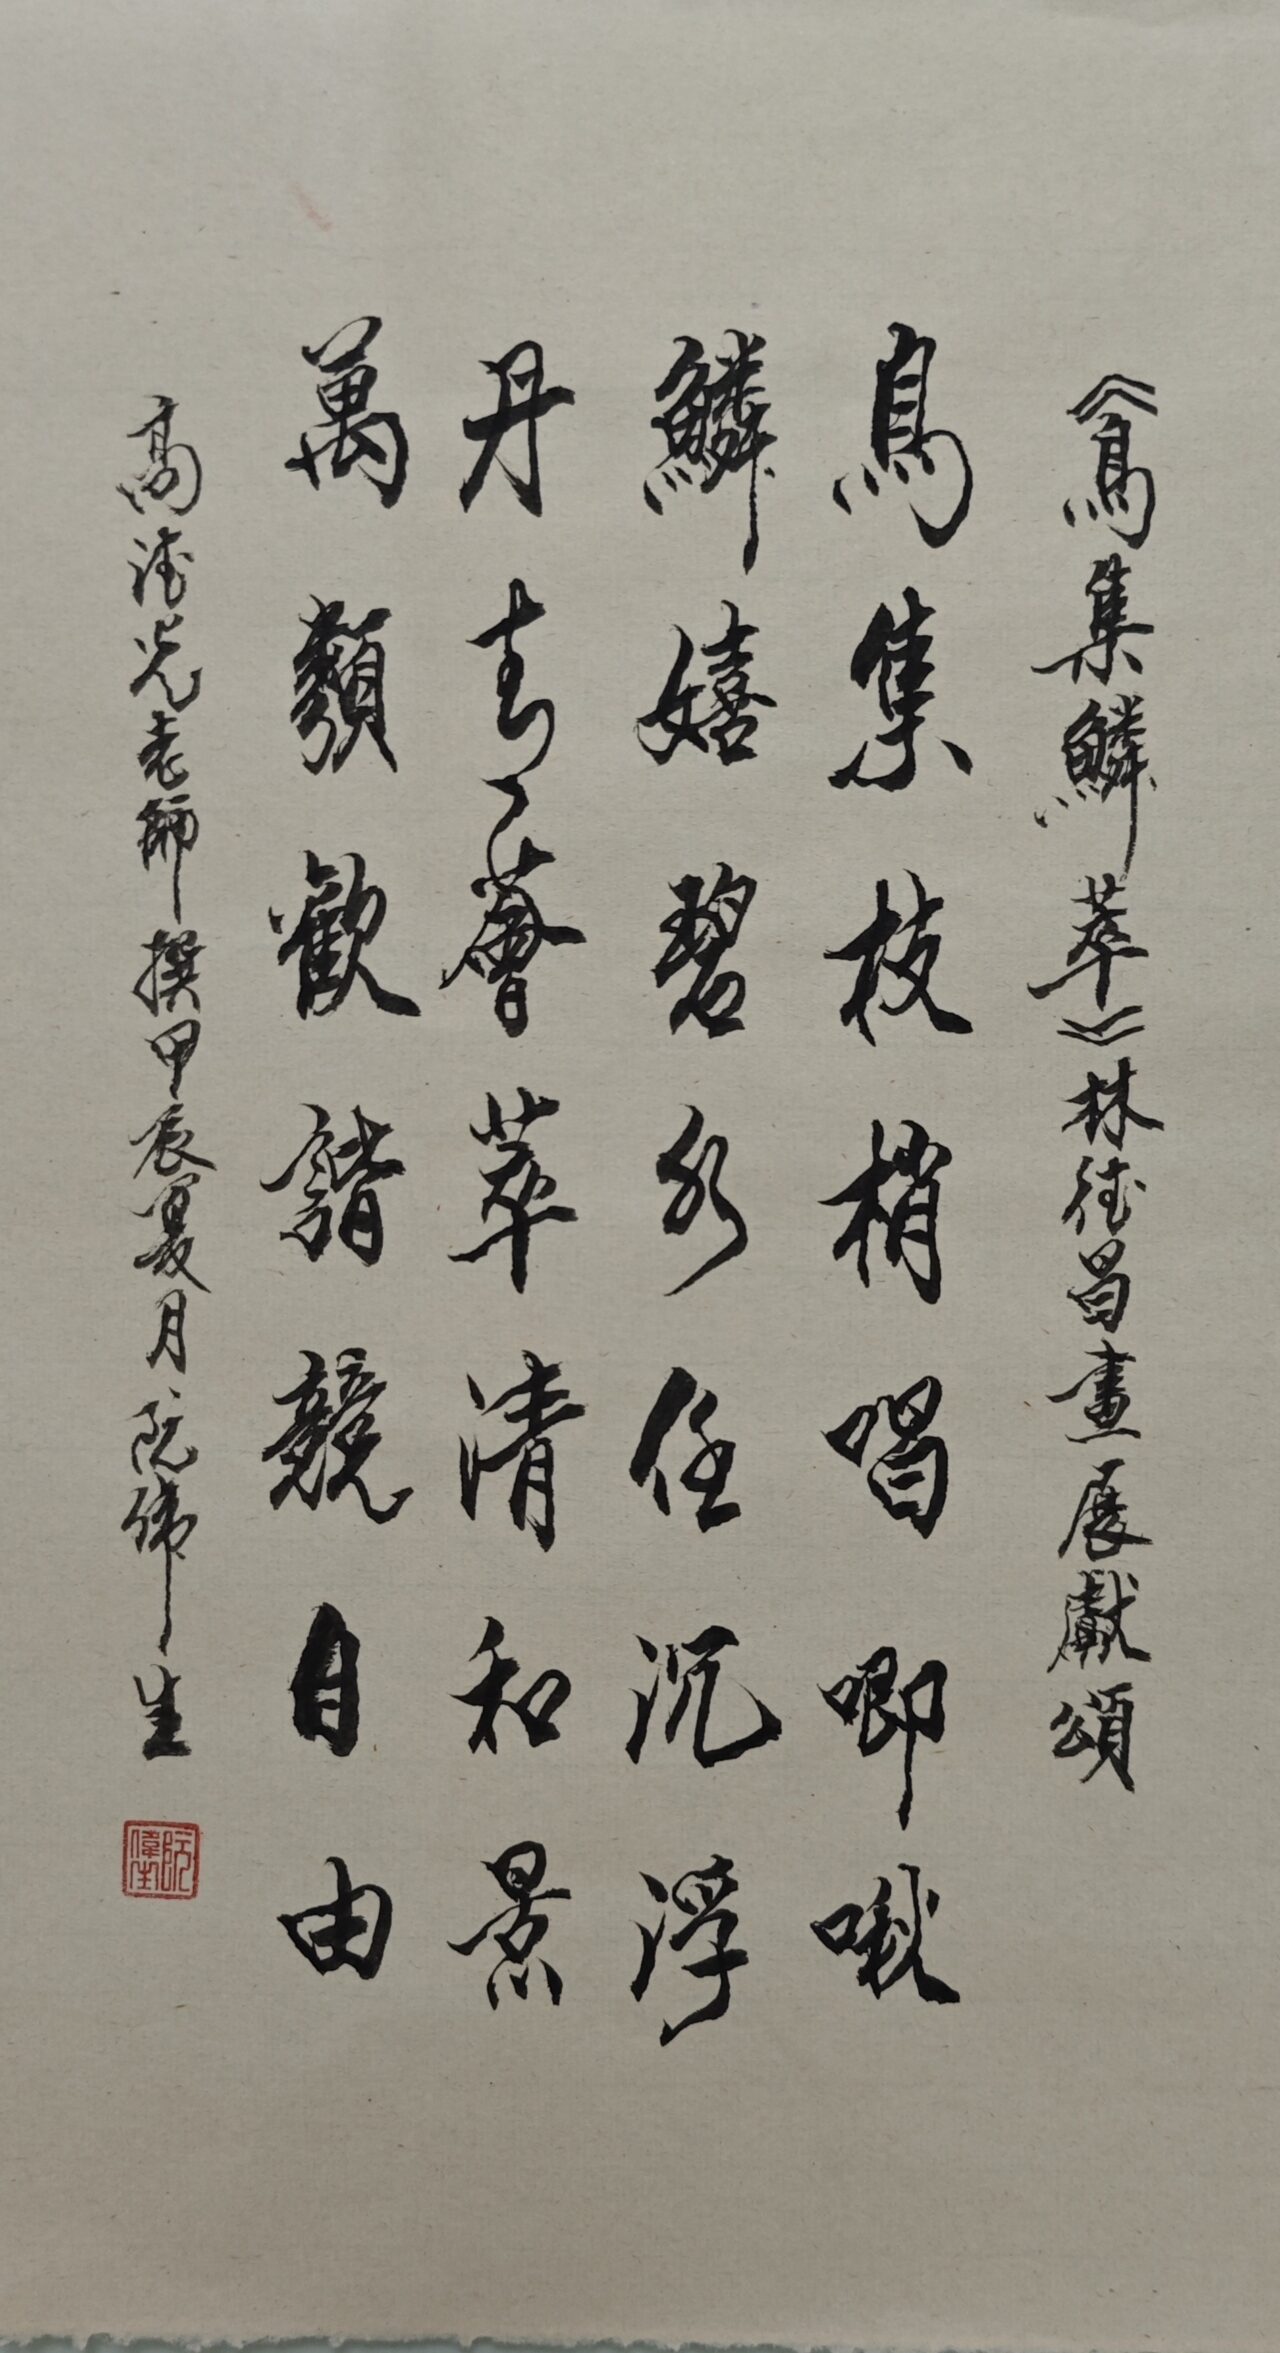 《鳥集鱗萃》林德昌畫展獻頌
鳥集枝梢唱唧啾
鱗嬉碧水任沉浮
丹青薈萃清和景
萬類歡諧競自由
高德光老師撰甲辰夏月阮偉生
阮偉生